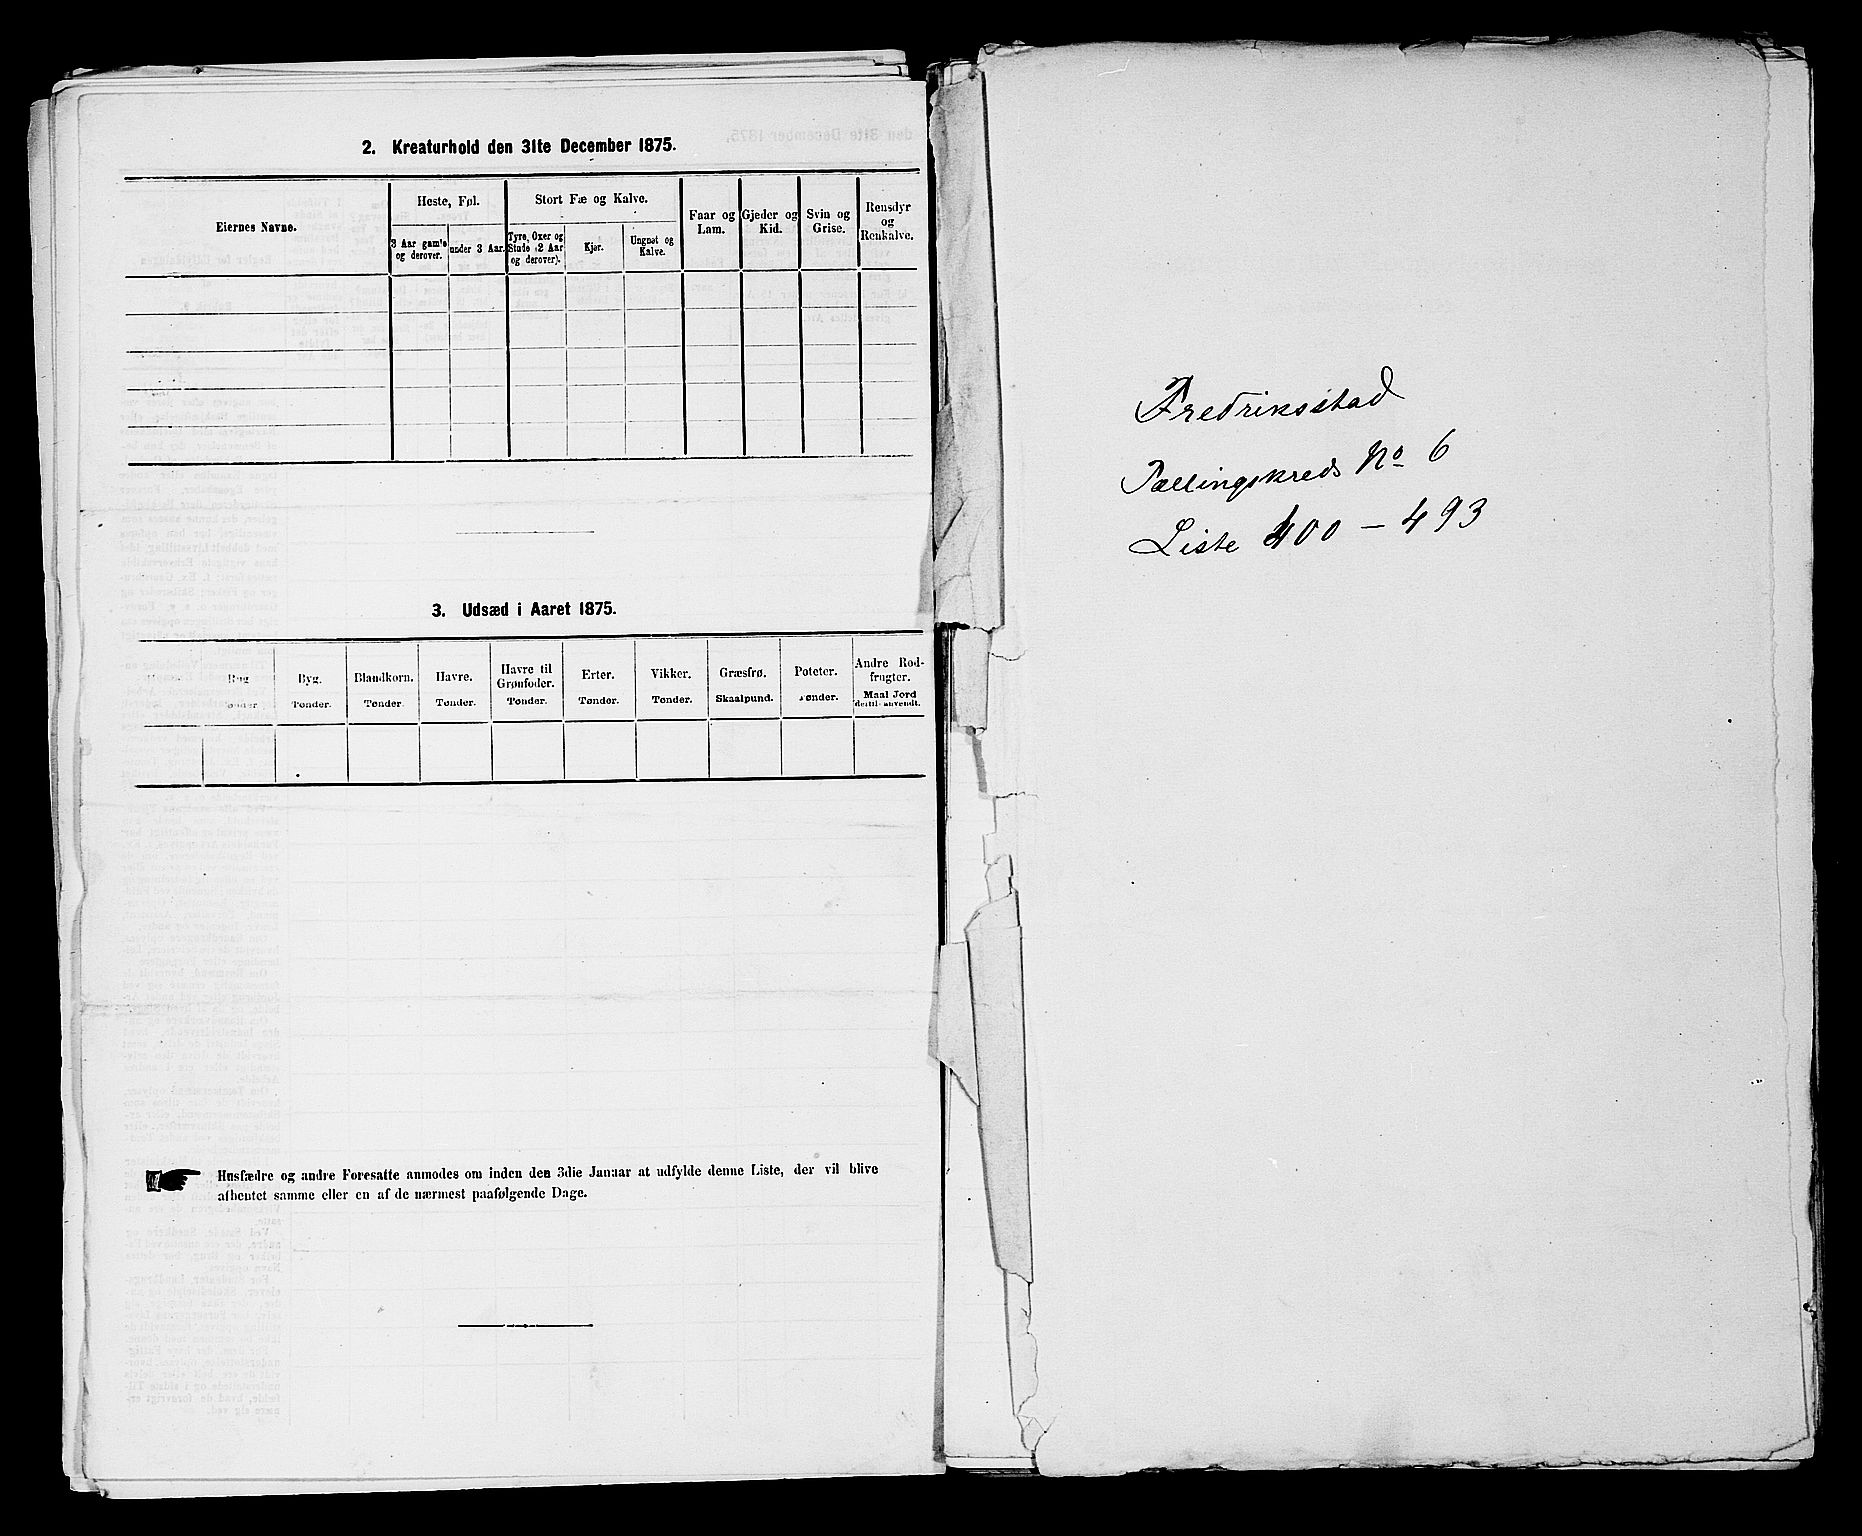 2. Kreaturhold den 31te December 1875.
Eiernes Navne.
Heste, Føl.
3 Aar gamle og derover.
under 3 Aar.
Stort Fæ og Kalve.
Tyre, Oxer og Stude (2 Aar og derover).
Kjør.
Ungnøt og Kalve.
Faar og Lam.
Gjeder og Kid.
Svin og Grise.
Rensdyr og Renkalve.
3. Udsæd i Aaret 1875.
Rug
Tønder
Byg.
Tønder.
Blandkorn.
Tønder.
Havre.
Tønder.
Havre til Grønfoder.
Tønder.
Erter.
Tønder.
Vikker.
Tønder.
Græsfrø.
Skaalpund.
Poteter.
Tønder.
Andre Rodfrugter.
Maal Jord dertil anvendt.
Husfædre og andre Foresatte anmodes om inden den 3die Januar at udfylde denne Liste, der vil blive
afhentet samme eller en af de nærmest paafølgende Dage.
Fredriksstad
Tællingskreds No 6
Liste 400 – 493